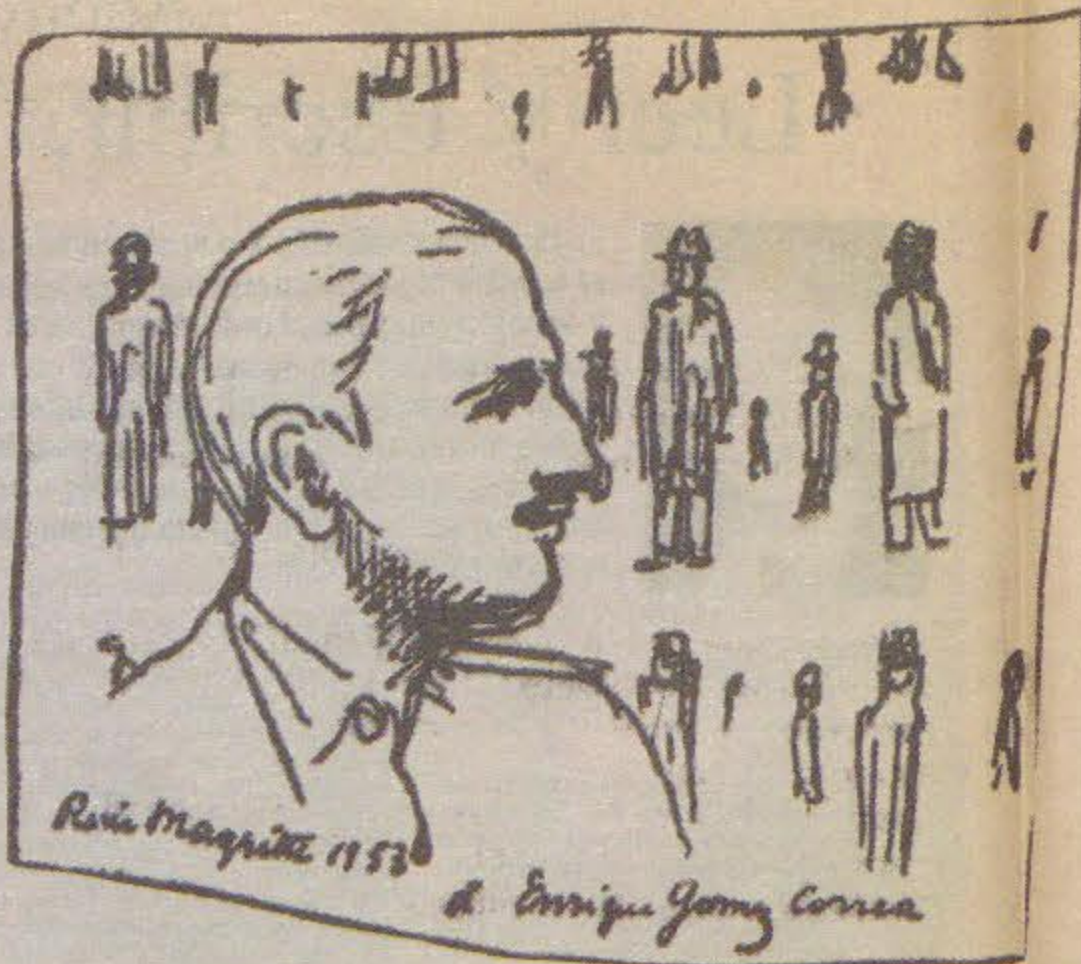 René Magritte 1953
à Enrique Gomez Correa